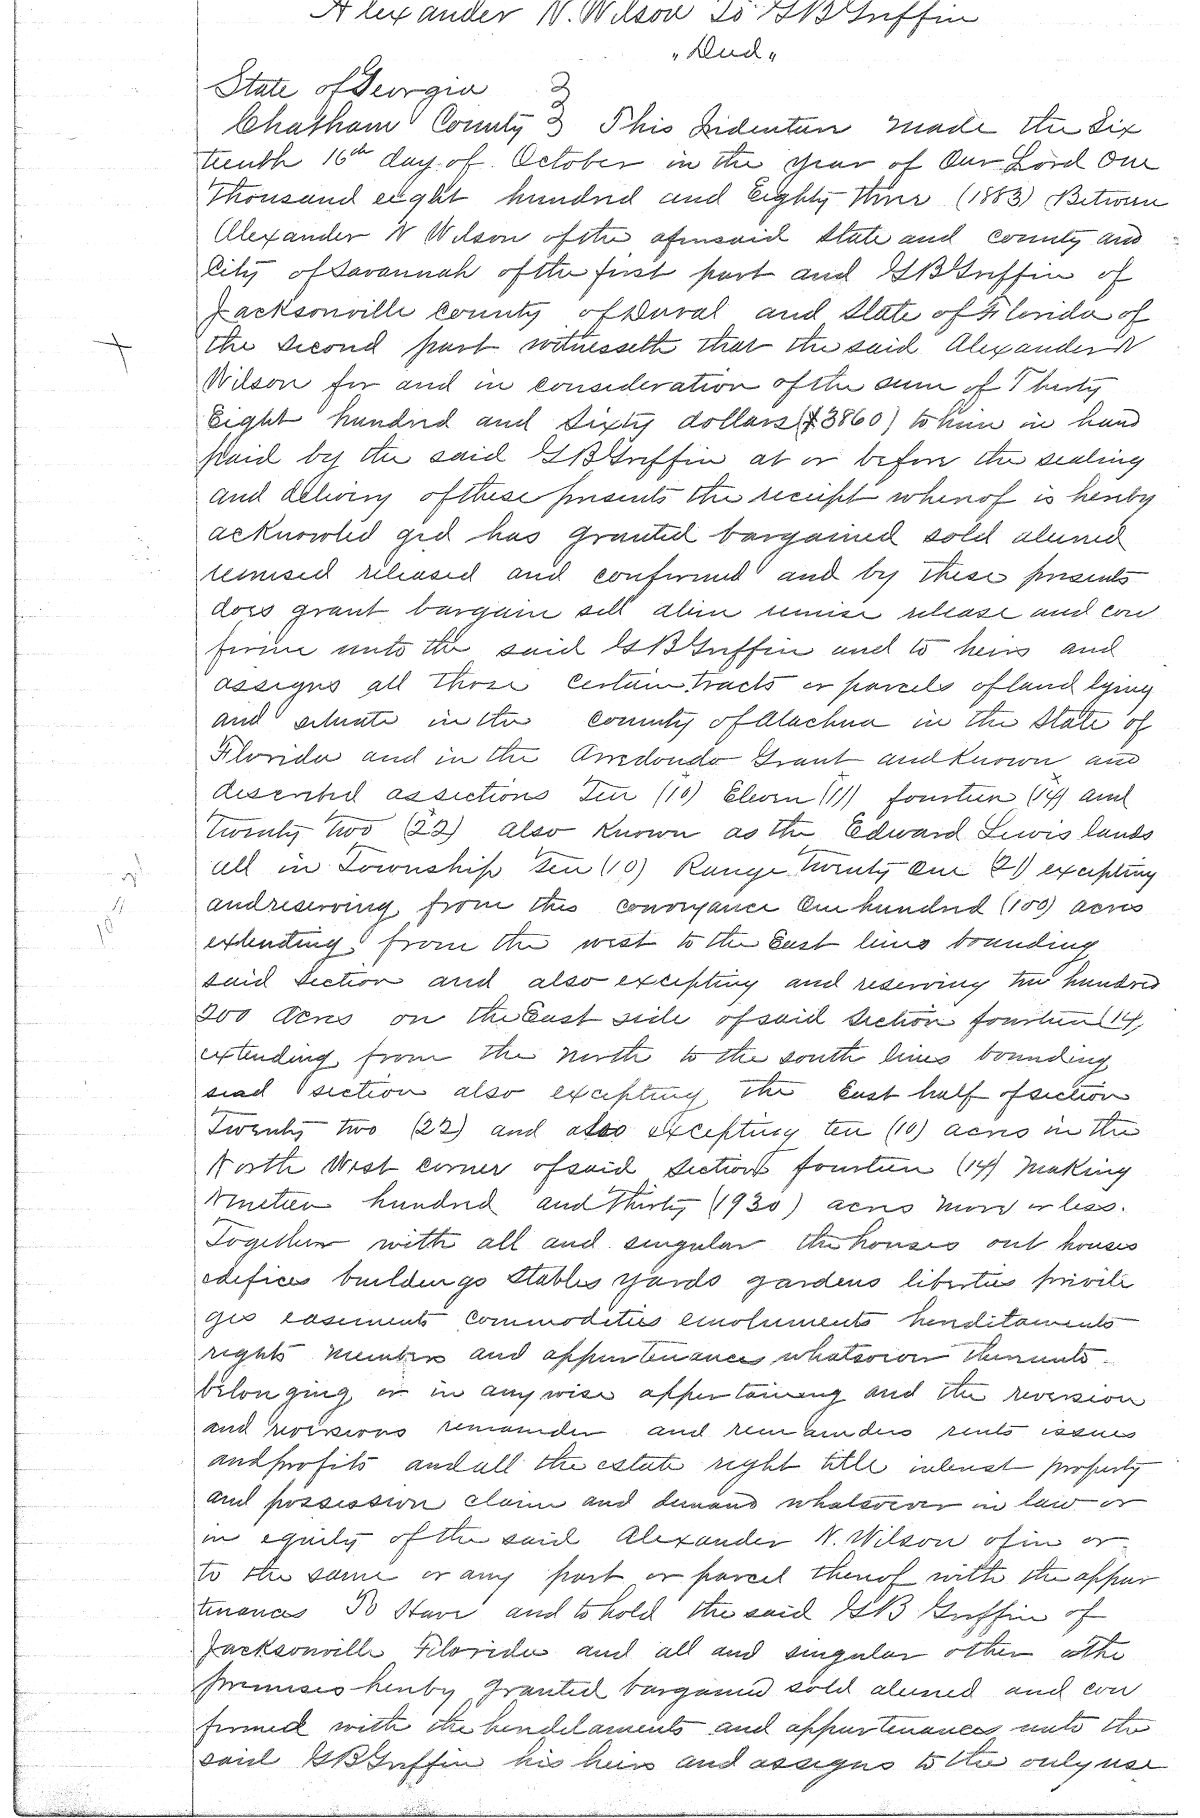 Alexander N. Wilson To G B Griffin
"Deed"
State of Georgia }
Chatham County } This Indenture made the Six
teenth 16th day of October in the year of Our Lord One
Thousand eight hundred and Eighty three (1883) Between
Alexander N Wilson of the aforesaid State and county and
City of Savannah of the first part and G B Griffin of
Jacksonville county of Duval and State of Florida of
the second part witnesseth that the said Alexander N
Wilson for and in consideration of the sum of Thirty
Eight hundred and Sixty dollars ($3860) to him in hand
paid by the said G B Griffin at or before the sealing
and delivery of these presents the receipt whereof is hereby
acknowled ged has granted bargained sold aliened
remised released and confirmed and by these presents
does grant bargain sell alien remise release and con
firme unto the said G B Griffin and to heirs and
assigns all those certain tracts or parcels of land lying
and situate in the county of Alachua in the State of
Florida and in the Arredondo Grant and Known and
described as sections Ten (10) Eleven (11) fourteen (14) and
Twenty two (22) also Known as the Edward Lewis lands
all in Township Ten (10) Range Twenty One (21) excepting
and reserving from this conveyance One hundred (100) acres
extending from the west to the East lines bounding
said Section and also excepting and reserving two hundred
200 acres on the East side of said section fourteen (14,
extending from the North to the south lines bounding
siad section also excepting the East half of section
Twenty two (22) and also excepting ten (10) acres in the
North West corner of said section fourteen (14) making
Nineteen hundred and Thirty (1930) acres more or less.
Together with all and singular the houses out houses
edifices buildings stables yards gardens liberties privile
ges easements commodities emoluments hereditaments
rights members and appurtenances whatsoever thereunto
belonging or in any wise appertaining and the reversion
and reversions remainder and remainders rents issues
and profits and all the estate right title interest property
and possession claim and demand whatsoever in law or
in equity of the said Alexander N. Wilson of in or
to the same or any part or parcel thereof with the appur
tenances To Have and to hold the said G B Griffin of
Jacksonville Florida and all and singular other the
premises hereby granted bargained sold aliened and con
firmed with the hereditaments and appurtenances unto the
said G B Griffin his heirs and assigns to the only use